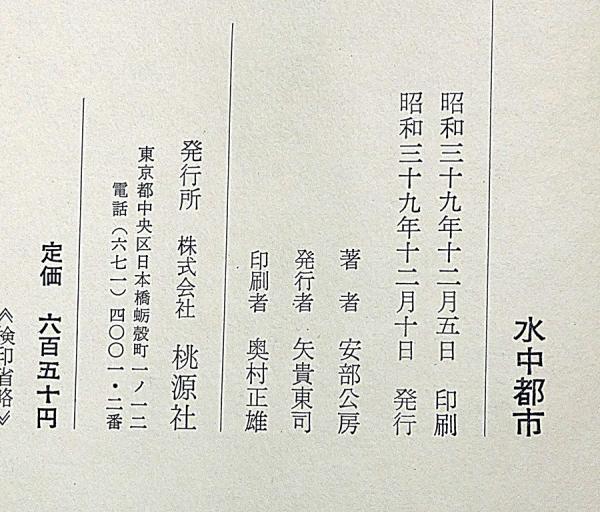 水中都市
昭和三十九年十二月五日 印刷
昭和三十九年十二月十日 発行
著者 安部公房
発行者 矢貴東司
印刷者 奥村正雄
発行所 株式会社 桃源社
東京都中央区日本橋蛎殻町一ノ一二
電話(六七一)四〇〇一・二番
定価 六百五十円
《検印省略》